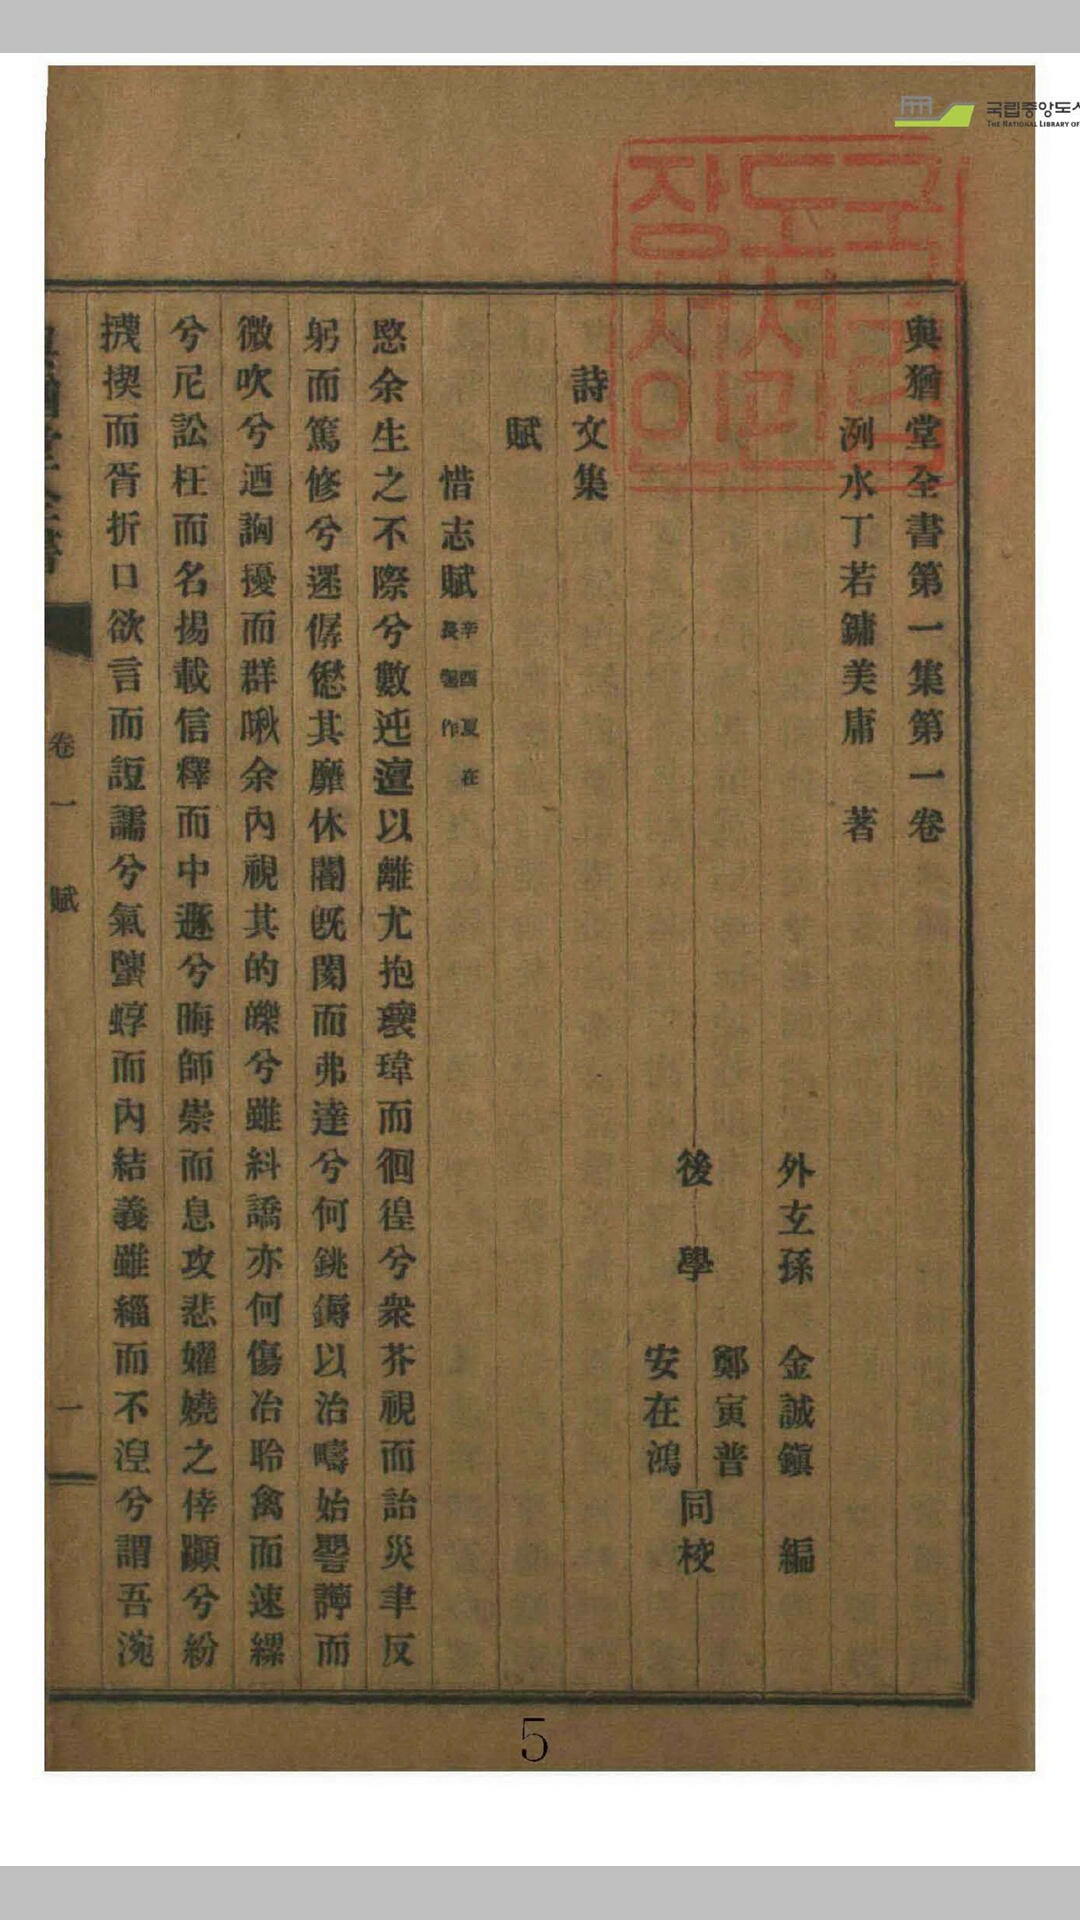 국립중앙도서
THE NATIONAL LIBRARY OF
與猶堂全書第一集第一卷
洌水丁若鏞美庸 著
外玄孫 金誠鎭 編
後學 鄭寅普
安在鴻 同校
詩文集
賦
惜志賦 辛酉夏在
長鬐作
愍余生之不際兮數迍邅以離尤抱瓌瑋而徊徨兮衆芥視而詒災聿反
躬而篤修兮遝僝僽其靡休闇旣閔而弗達兮何銚鎒以治疇始譻譚而
微吹兮迺詾擾而群啾余內視其的皪兮雖糾譑亦何傷冶聆禽而速縲
兮尼訟枉而名揚載信釋而中遯兮晦師崇而息攻悲嬥嬈之倖躓兮紛
機揳而胥折口欲言而詎讘兮氣蠁蜳而內結義雖緇而不湼兮謂吾涴
卷一 賦 一
5